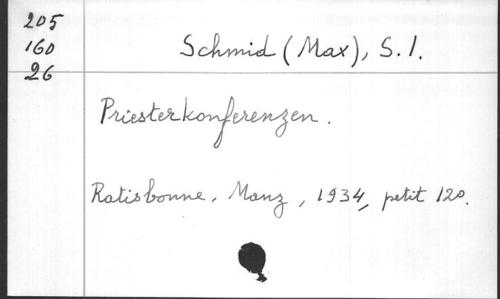 205
160
26
Schmid (Max), S. J.
Priesterkonferenzen.
Ratisbonne, Manz, 1934, petit 12o.